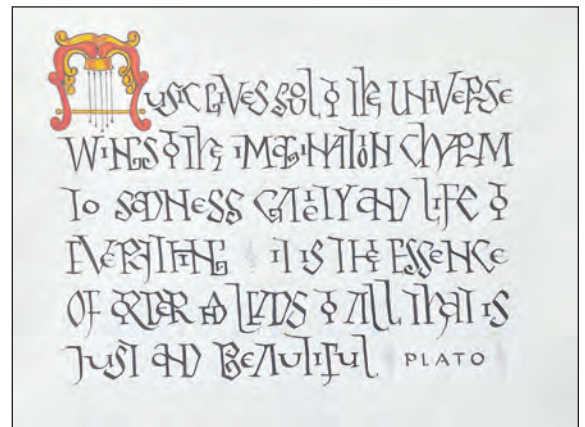 MUSIC GIVES SOUL TO THE UNIVERSE
WINGS TO THE IMAGINATION CHARM
TO SADNESS GAIETY AND LIFE TO
EVERYTHING IT IS THE ESSENCE
OF ORDER AND LEADS TO ALL THAT IS
JUST AND BEAUTIFUL. PLATO